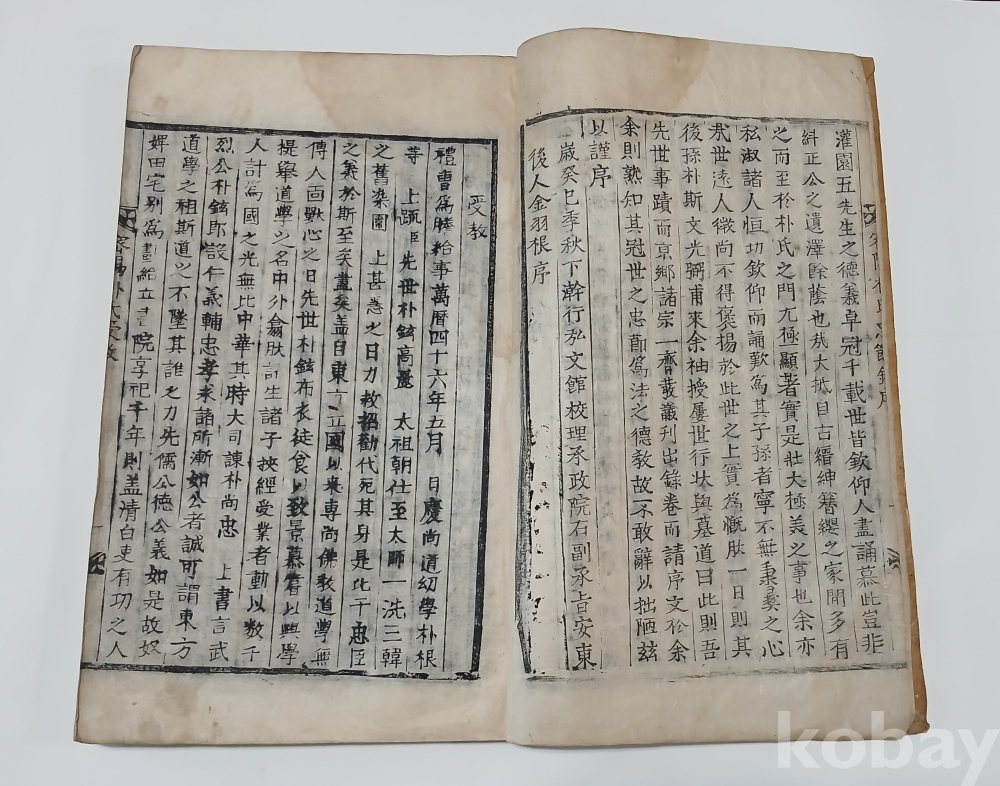 灌園五先生之德義卓冠千載世皆欽仰人盡誦慕此豈非
糾正公之遺澤餘蔭也哉大抵自古縉紳簪纓之家間多有
之而至於朴氏之門尤極顯著實是壯大極美之事也余亦
私淑諸人恒切欽仰而誦歎爲其子孫者寧不無秉彛之心
哉世遠人微尚不得褒揚於此世之上實爲慨肰一日則其
後孫朴斯文光弼甫來余袖授屢世行狀與墓道曰此則吾
先世事蹟而京鄕諸宗一齊裒議刊出錄卷而請序文於余
余則熟知其冠世之忠節爲法之德敎故不敢辭以拙陋玆
以謹序
歲癸巳季秋下幹行弘文館校理承政院右副承旨安東
後人金羽根序
受敎
禮曹爲謄給事萬曆四十六年五月 日慶尚道幼學朴根
等 上疏臣 先世朴鉉高麗 太祖朝仕至太師一洗三韓
之舊染國 上甚急之日力救招勸代死其身是比干忠臣
之義於斯至矣盡矣盖自東方立國以來專尚佛敎道學無
傳人面獸心之日先世朴鉉布衣徒食以致景慕書以興學
提擧道學之名中外翕肰諸生諸子挾經受業者動以數千
人計爲國之光無比中華其時大司諫朴尚忠 上書言武
烈公朴鉉郎設仁義輔忠孝求諸所漸如公者誠可謂東方
道學之祖斯道之不墜其誰之力先儒公德公義如是故奴
婢田宅别爲畫給立書院享祀千年則盖清白吏有功之人
kobay